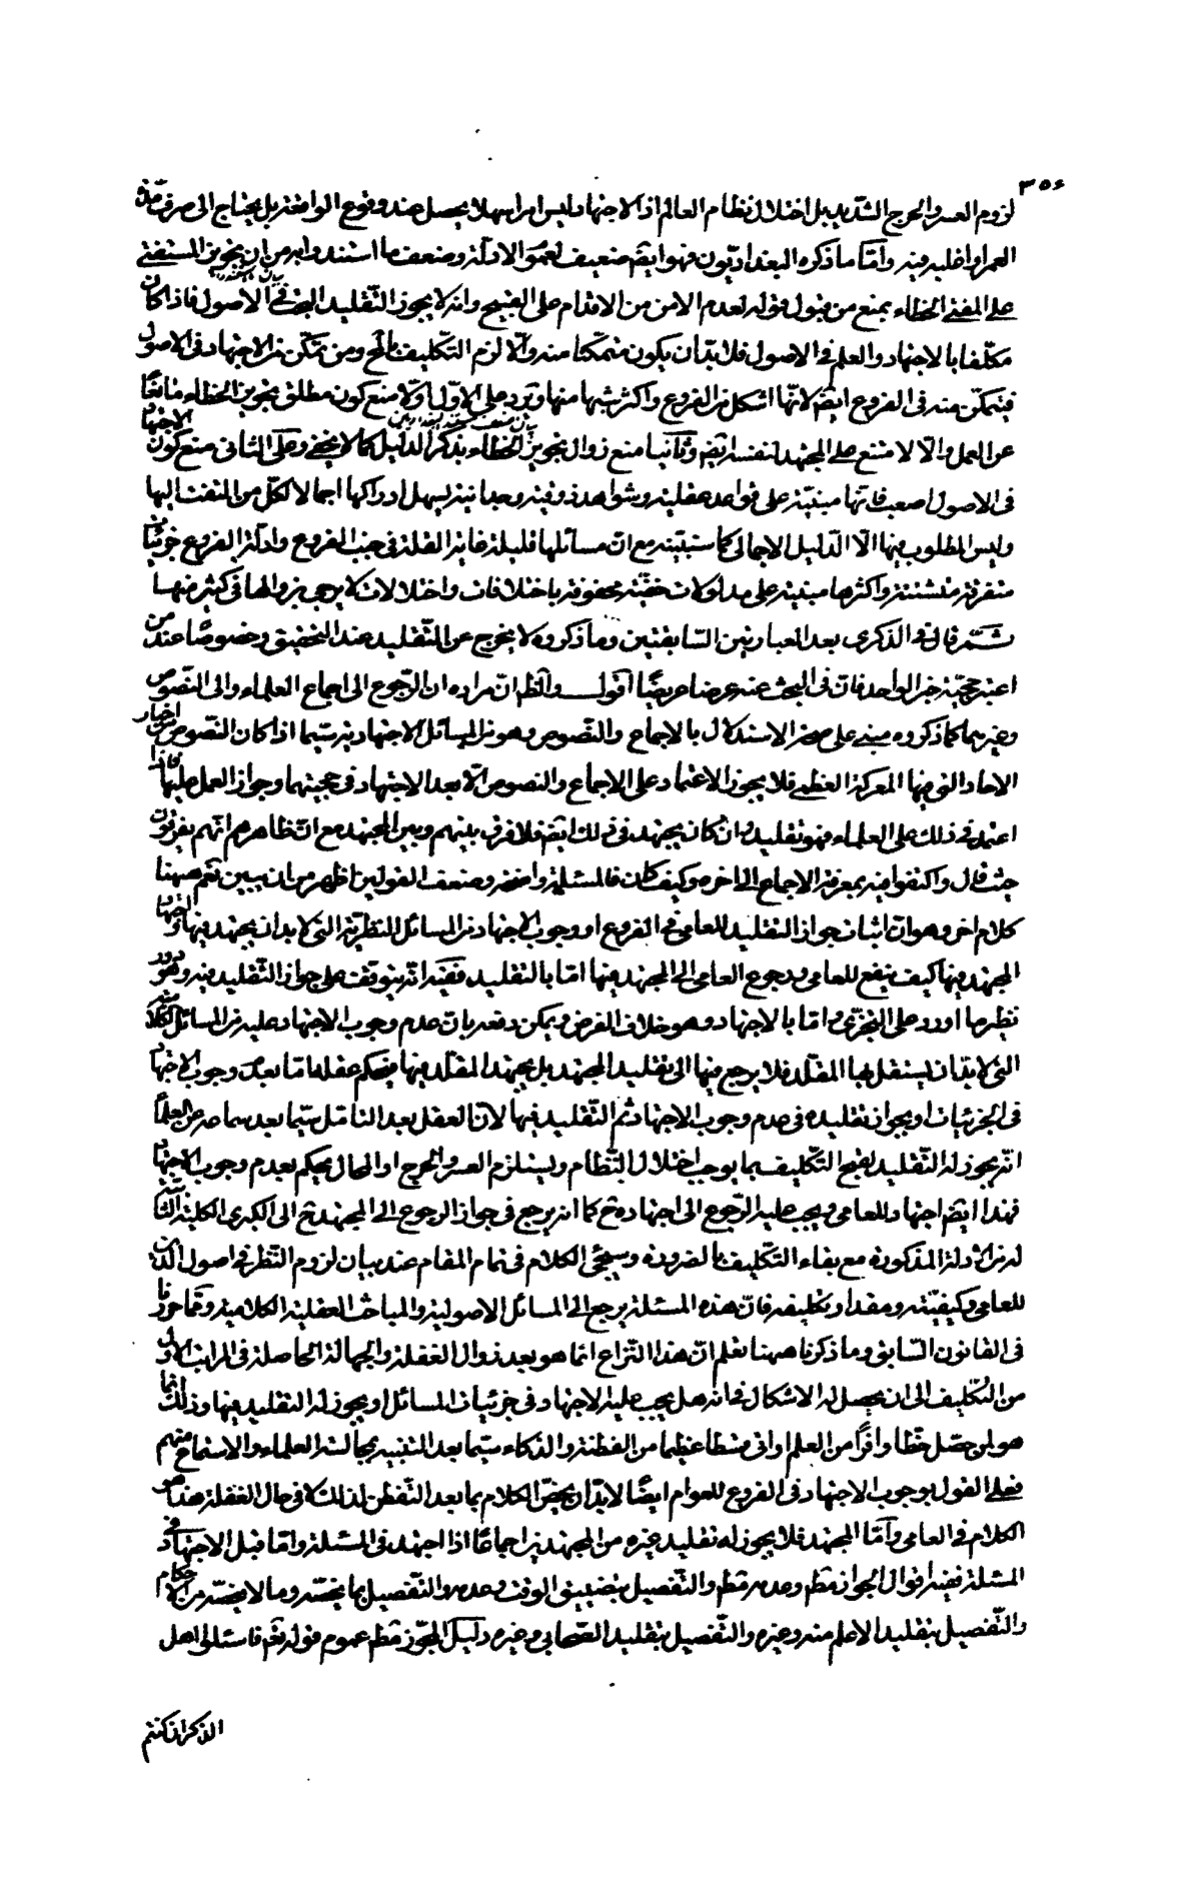 ٣٥٦
لزوم العسر والحرج الشديد بل اختلال نظام العالم اذ الاجتهاد ليس امرا سهلا يحصل عند وقوع الواقعة بل يحتاج الى صرف مدة
العمر او اغلبه فيه واما ما ذكره البغداديون فهو ايضم ضعيف لعموم الادلة وضعف ما استندوا به من ان تجويز المستفتى
على المفتى الخطاء يمنع من قبول قوله لعدم الامن من الاقدام على القبيح وانه لا يجوز التقليد فى الاصول فاذا كان
مكلفا بالاجتهاد والعلم فى الاصول فلا بد ان يكون متمكنا منه والا لزم التكليف بالمح ومن تمكن من الاجتهاد فى الاصول
فيتمكن منه فى الفروع ايضم لانها اشكل من الفروع واكثر شبها منها ويرد على الاول اولا منع كون مطلق تجويز الخطاء مانعا
عن العمل والا لامتنع على المجتهد لنفسه ايضم وثانيا منع زوال تجويز الخطاء بذكر الدليل كما لا يخفى وعلى الثانى منع كون الاجتهاد
فى الاصول اصعب فانها مبنية على قواعد عقلية وشواهد ذوقية وجدانية يسهل ادراكها اجمالا لكل من التفت اليها
وليس المطلوب فيها الا الدليل الاجمالى كما سنبينه مع ان مسائلها قليلة غاية القلة فى جنب الفروع وادلة الفروع جزئيات
متفرقة متشتتة واكثرها مبنية على مدلولات خفية محفوفة باختلافات واختلالات لا يرجى زوالها فى كثير منها
ثم قال فى الذكرى بعد العبارتين السابقتين وما ذكروه لا يخرج عن التقليد عند التحقيق وخصوصا عند من
اعتبر حجية خبر الواحد فان فى البحث عنه عرضا عريضا اقول والظ ان مراده ان الرجوع الى اجماع العلماء والى النصوص
وغيرهما كما ذكروه مبنى على صحة الاستدلال بالاجماع والنصوص وهو من المسائل الاجتهادية سيما اذا كان النصوص من اخبار
الاحاد التى فيها المعركة العظمى فلا يجوز الاعتماد على الاجماع والنصوص الا بعد الاجتهاد فى حجيتهما وجواز العمل عليها فاذا
اعتمد فى ذلك على العلماء فهو تقليد وان كان يجتهد فى ذلك ايضم فلا فرق بينهم وبين المجتهد مع ان ظاهرهم انهم يفرقون
حيث قال واكتفوا فيه بمعرفة الاجماع الى اخره وكيف كان فالمسئلة واضحة وضعف القولين اظهر من ان يبين نعم ههنا
كلام اخر وهو ان اثبات جواز التقليد للعامى فى الفروع او وجوب الاجتهاد من المسائل النظرية التى لا بد ان يجتهد فيها واجتهاد
المجتهد فيها كيف ينفع للعامى ورجوع العامى الى المجتهد فيها اما بالتقليد ففيه انه يتوقف على جواز التقليد فيه وهو دور
نظير ما اورد على التجزى واما بالاجتهاد وهو خلاف الفرض ويمكن دفعه بان عدم وجوب الاجتهاد عليه من المسائل الكلامية
التى لا بد ان يستقل بها المقلد فلا يرجع فيها الى تقليد المجتهد بل يجتهد المقلد فيها فيحكم عقله اما بعدم وجوب الاجتهاد
فى الجزئيات او بجواز تقليده فى عدم وجوب الاجتهاد ثم التقليد فيها لان العقل بعد التامل سيما بعد سماعه من العلماء
انه يجوز له التقليد يقبح التكليف بما يوجب اختلال النظام ويستلزم العسر والحرج او المحال فيحكم بعدم وجوب الاجتهاد
فهذا ايضم اجتهاد للعامى ويجب عليه الرجوع الى اجتهاده ح كما انه يرجع فى جواز الرجوع الى المجتهد ح الى الكبرى الكلية الثابتة
له من الادلة المذكورة مع بقاء التكليف بالضرورة وسيجئ الكلام فى تمام المقام عند بيان لزوم النظر فى اصول الدين
للعامى وكيفيته ومقداره وتكليفه فان هذه المسئلة يرجع الى المسائل الاصولية والمباحث العقلية الكلامية ومما حررنا
فى القانون السابق وما ذكرنا ههنا تعلم ان هذا النزاع انما هو بعد زوال الغفلة والجهالة الحاصلة فى المراتب الاول
من التكليف الى ان يحصل له الاشكال فى انه هل يجب عليه الاجتهاد فى جزئيات المسائل او يجوز له التقليد فيها وذلك انما
هو لمن حصل حظا وافرا من العلم او اتى قسطا عظيما من الفطنة والذكاء سيما بعد التنبيه بمجالسة العلماء والاستماع منهم
فعلى القول بوجوب الاجتهاد فى الفروع للعوام ايضا لا بد ان يخص الكلام بما بعد التفطن لذلك لا فى حال الغفلة هذا هو
الكلام فى العامى واما المجتهد فلا يجوز له تقليد غيره من المجتهدين اجماعا اذا اجتهد فى المسئلة واما قبل الاجتهاد فى
المسئلة ففيه اقوال الجواز مظم وعدمه مظم والتفصيل بتضييق الوقت وعدمه والتفصيل بما يخصه وما لا يخصه من الاحكام
والتفصيل بتقليد الاعلم منه وغيره والتفصيل بتقليد الصحابى وغيره دليل المجوز مظم عموم قوله تعم فاسئلوا اهل
الذكر ان كنتم